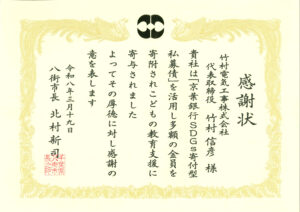 感謝状
竹村電気工事株式会社
代表取締役 竹村 信彦 様
貴社は「京葉銀行SDGs寄付型
私募債」を活用し多額の金員を
寄附されこどもの教育支援に
寄与されました
よってその厚徳に対し感謝の
意を表します
令和八年三月十九日
八街市長 北村新司